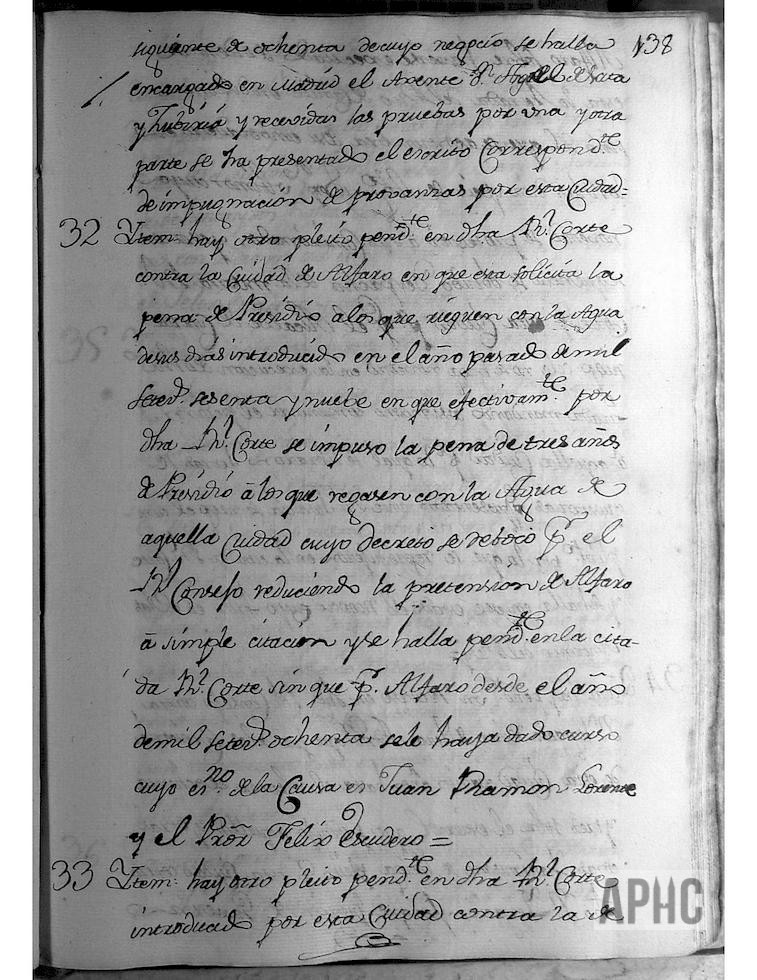 siguiente de ochenta de cuyo negocio se halla 138
encargado en Madrid el Agente Dn. Angel de
y Zubiria y recevidas las pruebas por una y otra
parte se ha presentado el escrito Correspondte
de impugnacion de provanzas por esta Ciudad=
32 Ytem: hay otro pleito pendte. en dha Rl. Corte
contra la Ciudad de Alfaro en que esta solicita la
pena de Presidio a los que rieguen con la Agua
de sus dias introducido en el año pasado de mil
setezs. sesenta y nuebe en que efectivamte. por
dha Rl. Corte se impuso la pena de tres años
de Presidio á los que regasen con la Agua de
aquella Ciudad cuyo decreto se reboco pr. el
Rl. Consejo reduciendo la pretension de Alfaro
á simple citacion y se halla pendte. en la cita-
da Rl. Corte sin que pr. Alfaro desde el año
de mil setezs. ochenta se le haya dado curso
cuyo esno. de la Causa es Juan Ramon Lorente
y el Pror. Felix Escudero=
33 Ytem: hay otro pleito pendte. en dha Rl. Corte
introducido por esta Ciudad contra la de
APHC